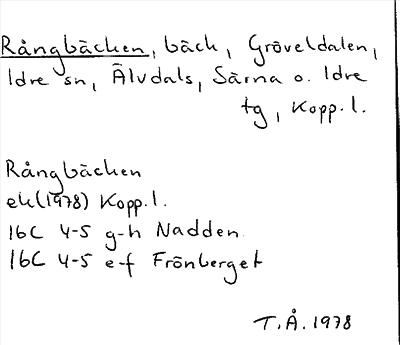 Rångbäcken, bäck, Gröveldalen,
Idre sn, Älvdals, Särna o. Idre
tg, Kopp. l.
Rångbäcken
ek(1978) Kopp. l.
16C 4-5 g-h Nadden
16C 4-5 e-f Frönberget
T.Å. 1978